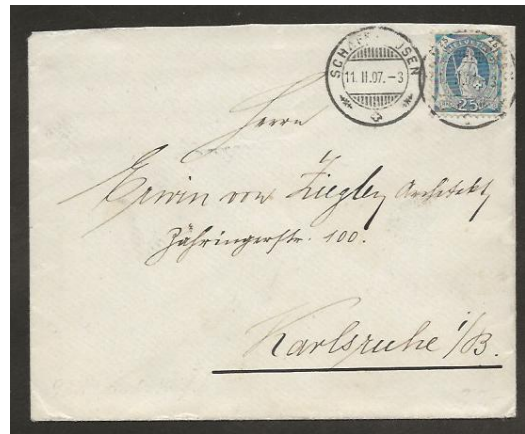 SCHAFFHAUSEN
11. II. 07. - 3
25
Herrn
Erwin von Ziegler, Architekt
Zähringerstr. 100.
Karlsruhe i/B.